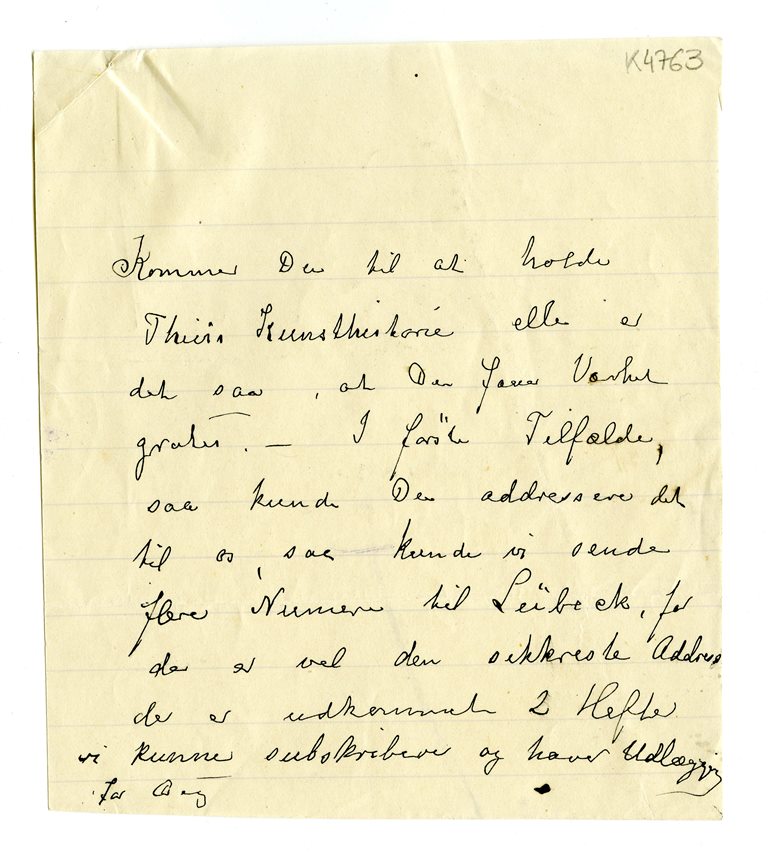 K4763
Kommer Du til at holde
Thiis Kunsthistorie eller er
det saa, at Du faar Værket
gratis. — I förste Tilfælde,
saa kunde Du addressere det
til os, saa kunde vi sende
flere Numere til Lübeck, for
der er vel den sikkreste Address
der er udkommet 2 Hefter
vi kunne subskribere og have Udlægging
for Dig